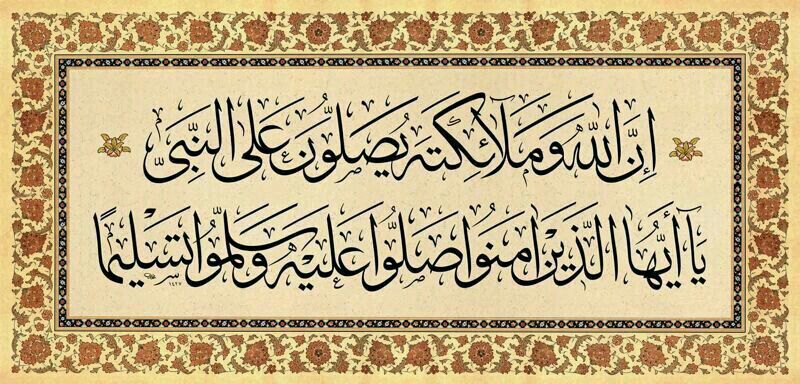 اِنَّ اللّٰهَ وَمَلَآئِكَتَهُ يُصَلُّونَ عَلَى النَّبِيِّ
يَآ أَيُّهَا الَّذِينَ اٰمَنُوا صَلُّوا عَلَيْهِ وَسَلِّمُوا تَسْلِيمًا
١٤٢٧